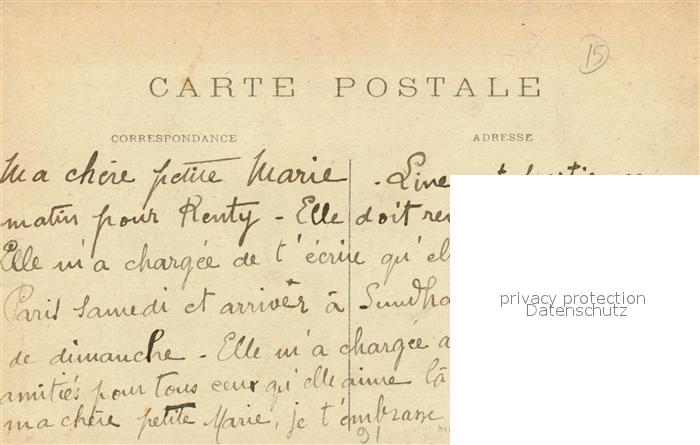 15
CARTE POSTALE
CORRESPONDANCE
ADRESSE
Ma chère petite Marie . Line
matin pour Renty - Elle doit
Elle m'a chargée de t'écrire
Paris samedi et arriver à
de dimanche - Elle m'a chargée
amitiés pour tous ceux qu'elle aime là
ma chère petite Marie, je t'embrasse
91
privacy protection
Datenschutz